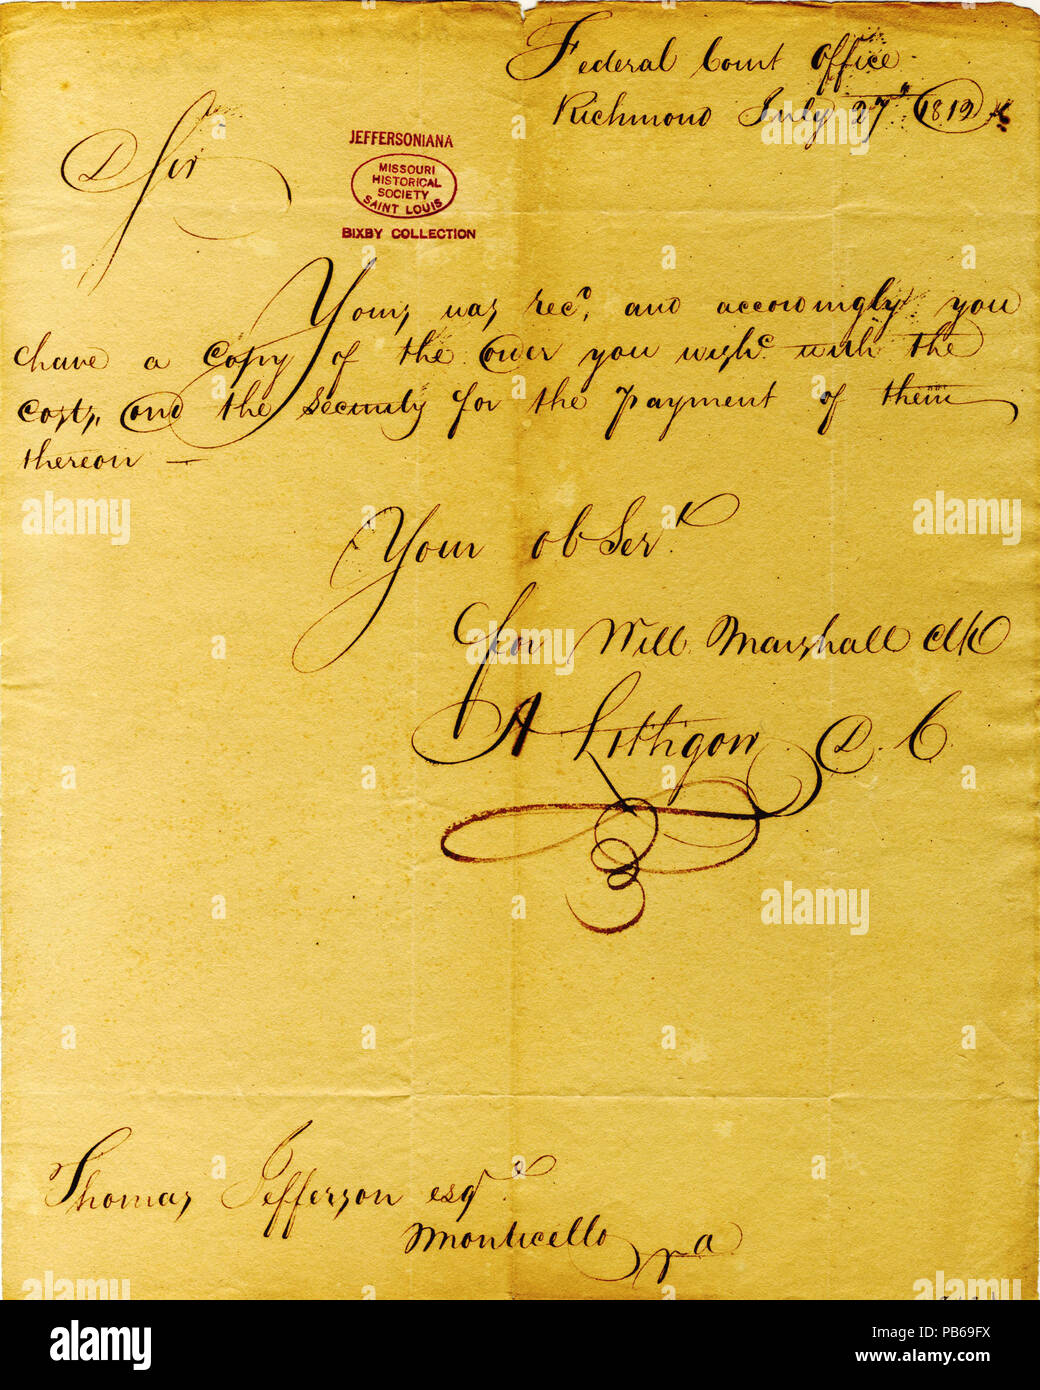 Federal Court Office
Richmond July 27" 1812
D Sir
JEFFERSONIANA
MISSOURI
HISTORICAL
SOCIETY
SAINT LOUIS
BIXBY COLLECTION
Yours was rec.d, and accordingly you
have a Copy of the order you wish.d with the
Costs, and the security for the payment of them
thereon —
Your ob Ser.t
for Will. Marshall clk
A Lithgow D. C.
Thomas Jefferson esq.r
Monticello
va
alamy
alamy
alamy
alamy
alamy
a alamy
Image ID: PB69FX
www.alamy.com